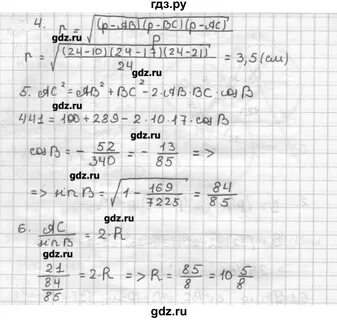 гдз.ру
4. r = √((p-AB)(p-BC)(p-AC)/p)
r = √((24-10)(24-17)(24-21)/24) = 3,5 (см)
5. AC² = AB² + BC² - 2·AB·BC·cosB
441 = 100 + 289 - 2·10·17·cosB
cosB = - 52/340 = - 13/85 =>
=> sinB = √(1 - 169/7225) = 84/85
6. AC/sinB = 2·R
21/(84/85) = 2·R => R = 85/8 = 10 5/8
гдз.ру